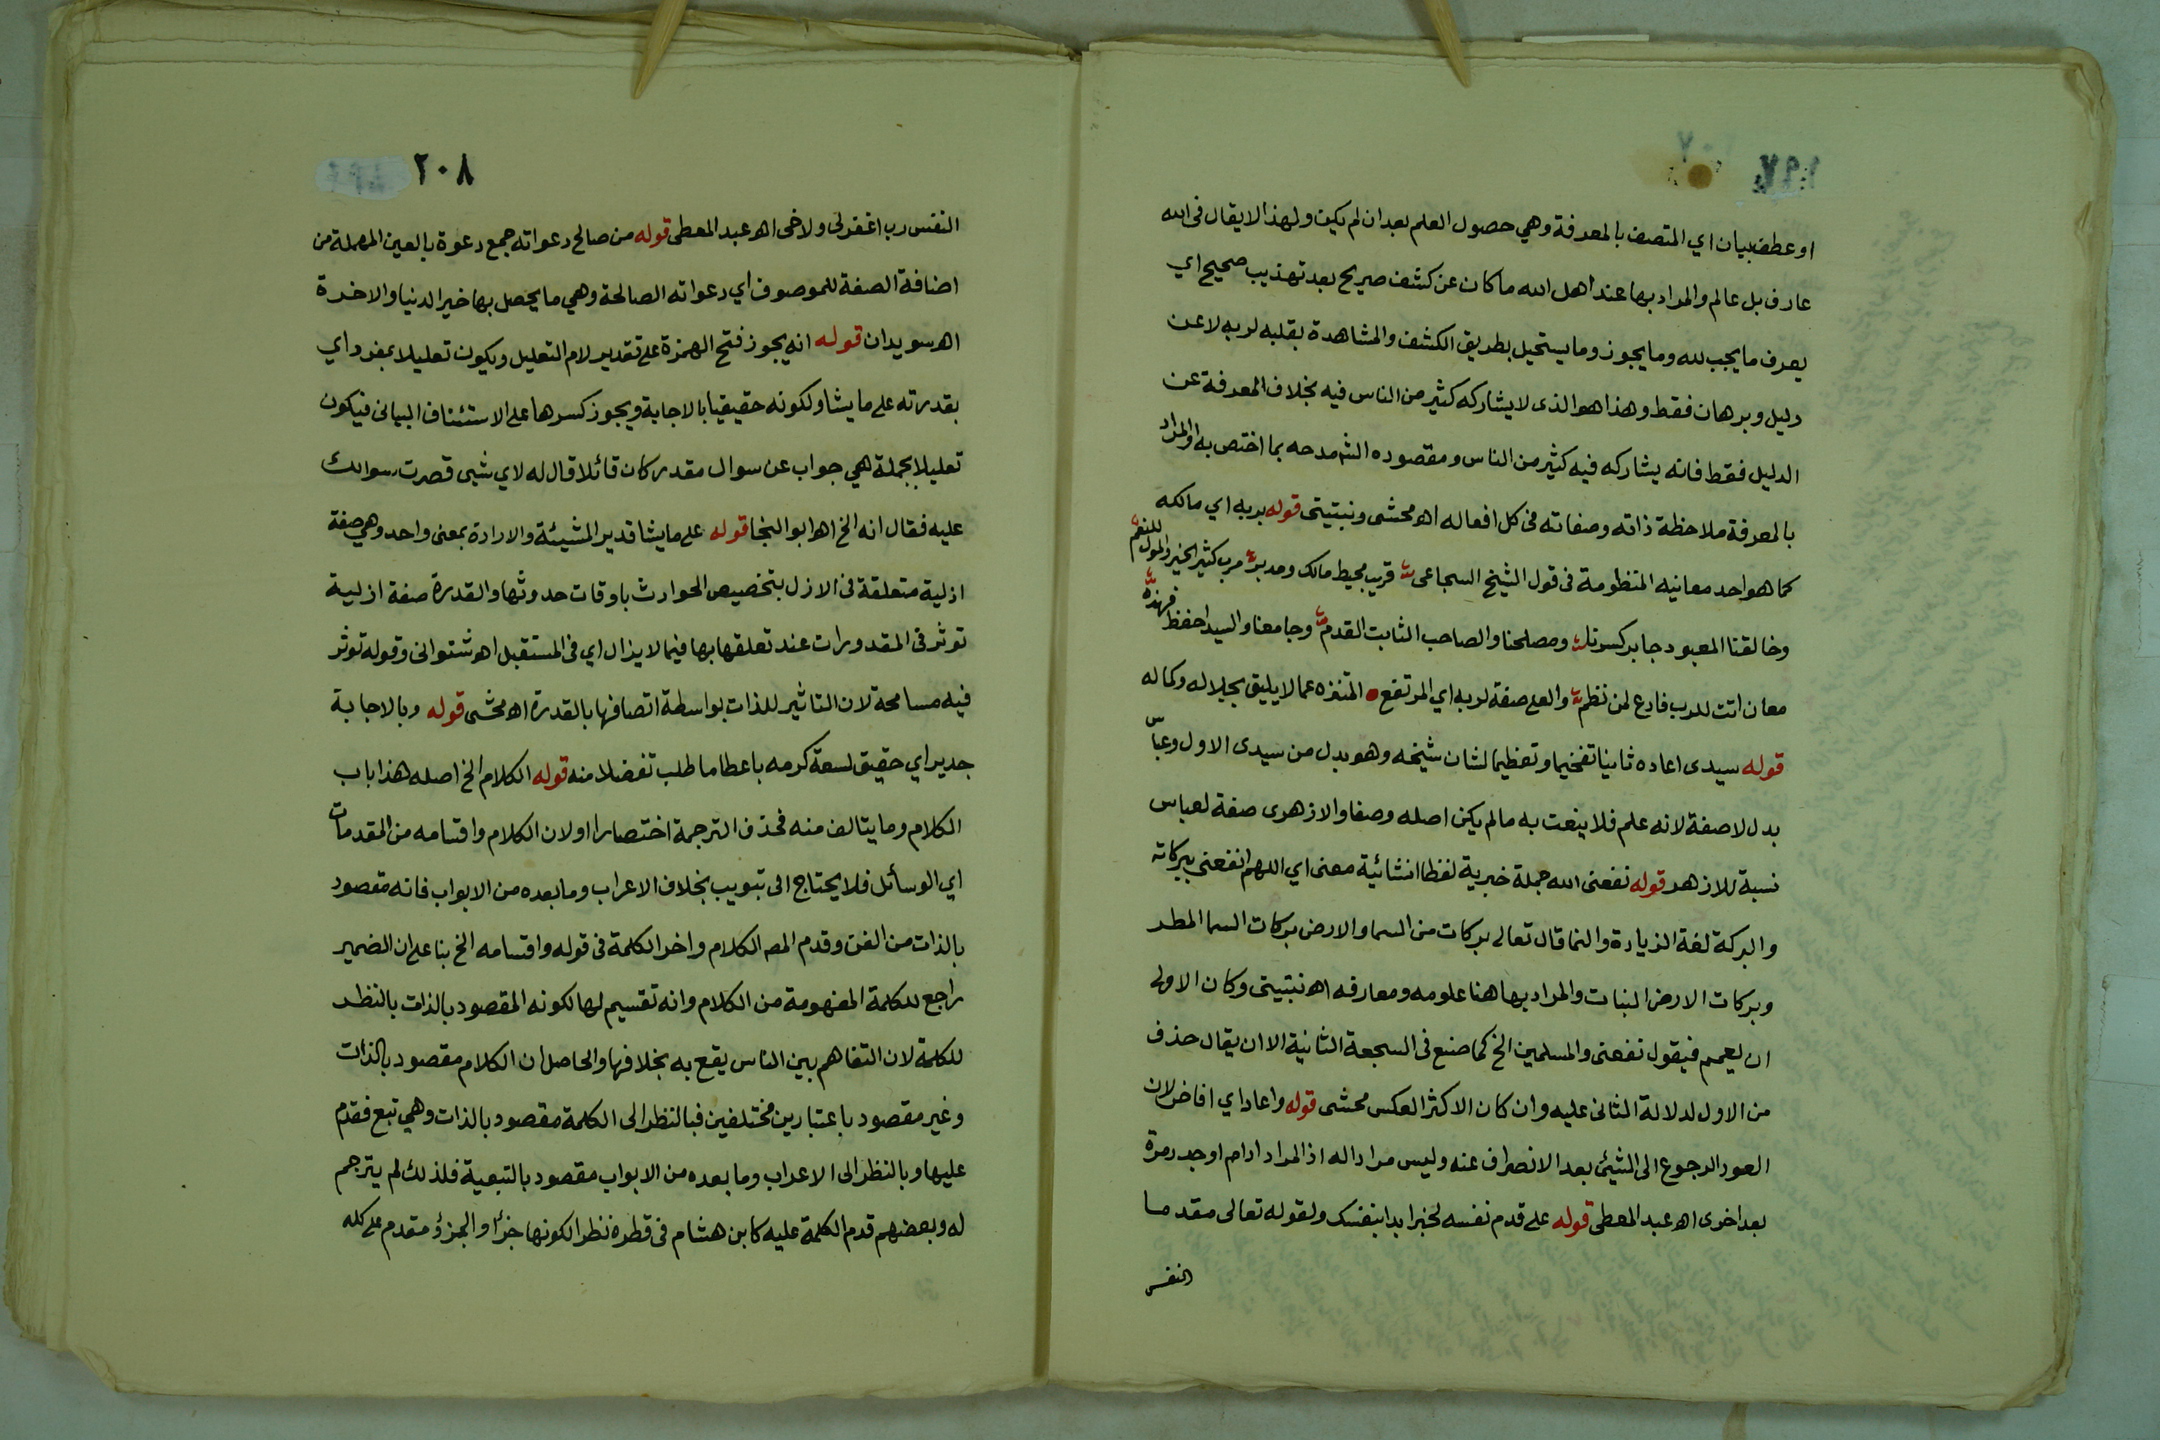 او عطف بيان اي المتصف بالمعرفة وهي حصول العلم بعد ان لم يكن ولهذا لا يقال في الله
عارف بل عالم والمراد بها عند اهل الله ما كان عن كشف صريح بعد تهذيب صحيح اي
يعرف ما يجب لله وما يجوز وما يستحيل بطريق الكشف والمشاهدة بقلبه لربه لا عن
دليل وبرهان فقط وهذا هو الذى لا يشاركه كثير من الناس فيه بخلاف المعرفة عن
الدليل فقط فانه يشاركه فيه كثير من الناس ومقصوده الش مدحه بما اختص به او المراد
بالمعرفة ملاحظة ذاته وصفاته فى كل افعاله اهـ محشى ونبتيتى قوله بربه اي مالكه
كما هو احد معانيه المنظومة فى قول الشيخ السجاعى قريب محيط مالك ومدبر مرب كثير الخير والمول للنعم
وخالقنا المعبود جابر كسرنا ومصلحنا والصاحب الثابت القدم وجامعنا والسيد احفظ فهذه
معان اتت للرب فادع لمن نظم والعلى صفة لربه اي المرتفع المتنزه عما لا يليق بجلاله وكماله
قوله سيدى اعاده ثانيا تفخيما وتعظيما لشان شيخه وهو بدل من سيدى الاول وعباس
بدل لا صفة لانه علم فلا ينعت به ما لم يكن اصله وصفا والازهرى صفة لعباس
نسبة للازهر قوله نفعنى الله جملة خبرية لفظا انشائية معنى اي اللهم انفعنى ببركاته
والبركة لغة الزيادة والنما قال تعالى بركات من السما والارض بركات السما المطر
وبركات الارض النبات والمراد بها هنا علومه ومعارفه اهـ نبتيتى وكان الاولى
ان يعمم فيقول نفعنى والمسلمين الخ كما صنع فى السجعة الثانية الا ان يقال حذف
من الاول لدلالة الثانى عليه وان كان الاكثر العكس محشى قوله واعاد اي افاض لان
العود الرجوع الى الشيئ بعد الانصراف عنه وليس مرادا له اذ المراد ادام او جد رمرة
بعد اخرى اهـ عبد المعطى قوله على قدم نفسه لخبر ابدا بنفسك ولقوله تعالى مقدما
النفس
٢٠٨
النفس رب اغفر لى ولاخى اهـ عبد المعطى قوله من صالح دعواته جمع دعوة بالعين المهملة من
اضافة الصفة للموصوف اي دعواته الصالحة وهي ما يحصل بها خير الدنيا والاخرة
اهـ سويدان قوله انه يجوز فتح الهمزة على تقدير لام التعليل ويكون تعليلا بمفرد اي
بقدرته على ما يشا ولكونه حقيقيا بالاجابة ويجوز كسرها على الاستئناف البيانى فيكون
تعليلا بجملة هي جواب عن سوال مقدر كان قائلا قال له لاي شيى قصرت سوالك
عليه فقال انه الخ اهـ ابو النجا قوله على ما يشا قدير المشيئة والارادة بمعنى واحد وهي صفة
ازلية متعلقة فى الازل بتخصيص الحوادث باوقات حدوثها والقدرة صفة ازلية
توثر فى المقدورات عند تعلقها بها فيما لا يزال اي فى المستقبل اهـ شنوانى وقوله توثر
فيه مسامحة لان التاثير للذات بواسطة اتصافها بالقدرة اهـ محشى قوله وبالاجابة
جدير اي حقيق لسعة كرمه باعطا ما طلب تفضلا منه قوله الكلام الخ اصله هذا باب
الكلام وما يتالف منه فحذف الترجمة اختصارا او لان الكلام واقسامه من المقدمات
اي الوسائل فلا يحتاج الى تبويب بخلاف الاعراب وما بعده من الابواب فانه مقصود
بالذات من الفن وقدم المص الكلام واخر الكلمة فى قوله واقسامه الخ بنا على ان الضمير
راجع للكلمة المفهومة من الكلام وانه تقسيم لها لكونه المقصود بالذات بالنظر
للكلمة لان التفاهم بين الناس يقع به بخلافها والحاصل ان الكلام مقصود بالذات
وغير مقصود باعتبارين مختلفين فبالنظر الى الكلمة مقصود بالذات وهي تبع فقدم
عليها وبالنظر الى الاعراب وما بعده من الابواب مقصود بالتبعية فلذلك لم يترجم
له وبعضهم قدم الكلمة عليه كابن هشام فى قطره نظرا لكونها جزأ والجزؤ مقدم على كله